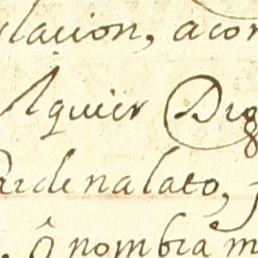 lacion, acor
Aquier Dio
Cardenalato, y
, ô nombra m